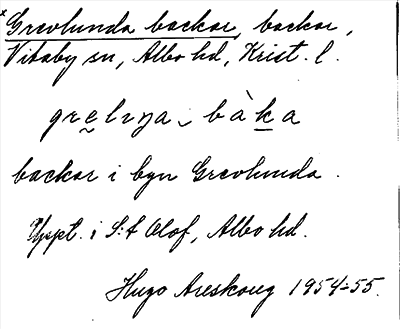 Grevlunda backar, backar,
Vitaby sn, Albo hd, Krist. l.
backar i byn Grevlunda.
Uppt. i S:t Olof, Albo hd.
Hugo Areskoug 1954-55.